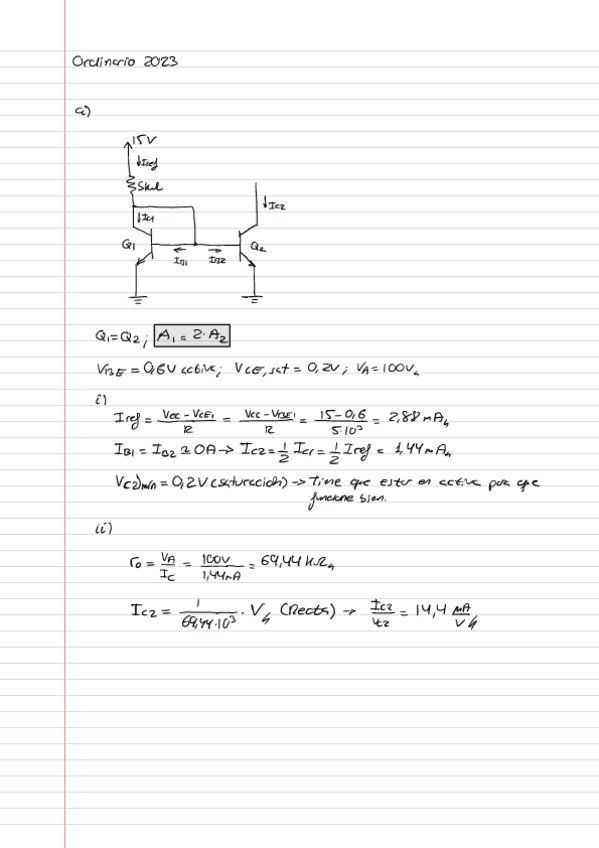 Ordinario 2023
a)
15V
↓Iref
5kΩ
↓Ic1
↓Ic2
Q1
Q2
IB1
IB2
Q1=Q2; A1 = 2·A2
VBE = 0,6V activa; VCE,sat = 0,2V; VA = 100V
i)
Iref = (Vcc - VCE1)/R = (Vcc - VBE1)/R = (15-0,6)/(5·10³) = 2,88 mA
IB1 = IB2 ≈ 0A → Ic2 = 1/2 Ic1 = 1/2 Iref = 1,44 mA
Vc2)min = 0,2V (saturación) → Tiene que estar en activa para que
funcione bien.
ii)
ro = VA/IC = 100V/1,44mA = 69,44 kΩ
Ic2 = 1/(69,44·10³) · V (Recta) → Ic2/V2 = 14,4 µA/V